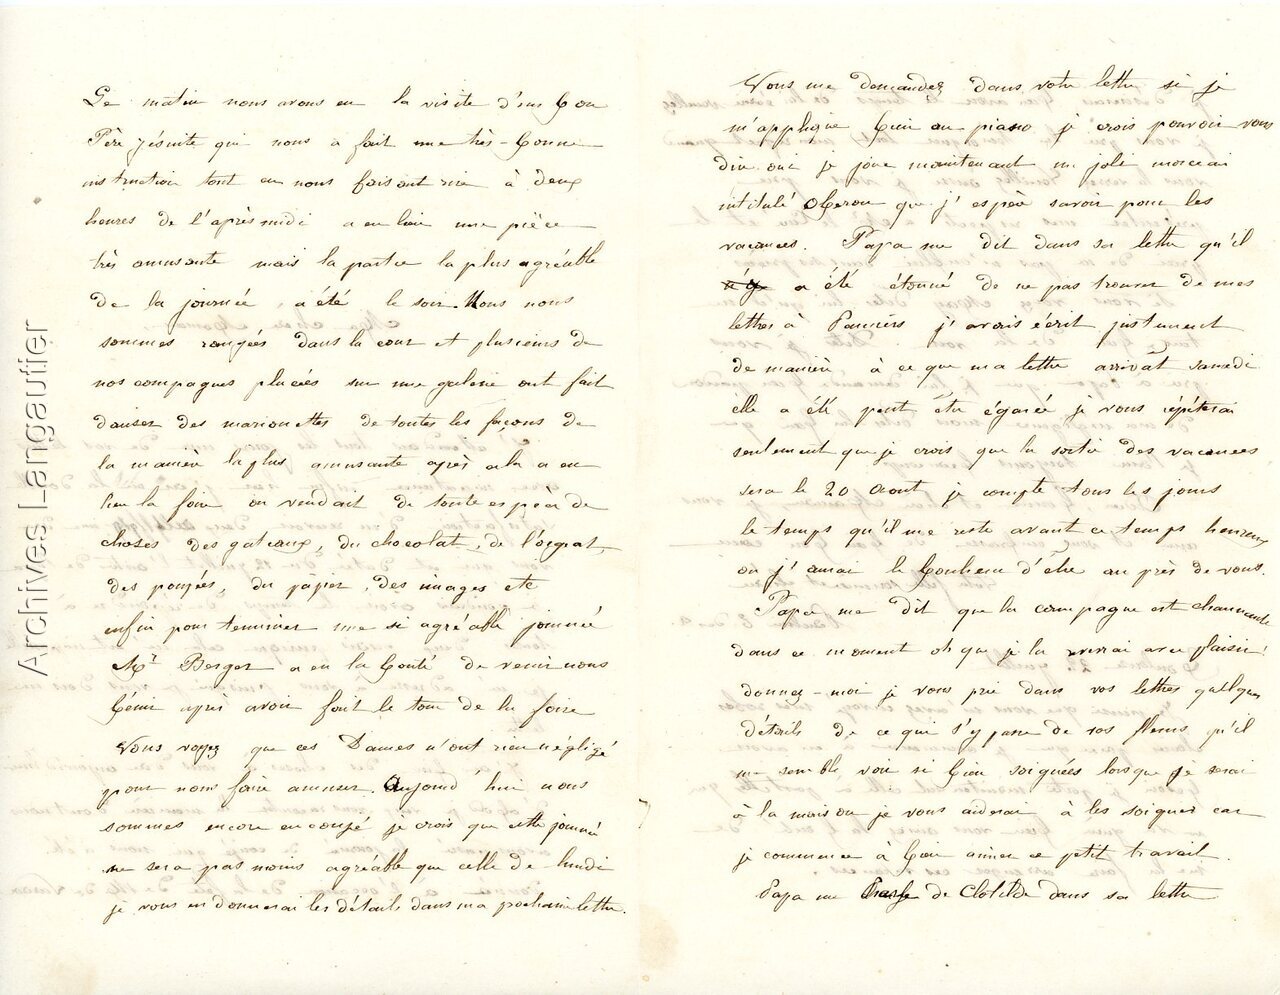 Le matin nous avons eu la visite d'un bon
Père jésuite qui nous a fait une très-bonne
instruction tout en nous faisant rire à deux
heures de l'après midi a eu lieu une pièce
très amusante mais la partie la plus agréable
de la journée, a été le soir. Nous nous
sommes rangées dans la cour et plusieurs de
nos compagnes placées sur une galerie ont fait
danser des marionettes de toutes les façons de
la manière la plus amusante après cela a eu
lieu la foire on vendait de toute espèce de
choses des gateaux, du chocolat, de l'orgeat,
des poupées, du papier, des images etc
enfin pour terminer une si agréable journée
Mr Berger a eu la bonté de venir nous
bénir après avoir fait le tour de la foire
Vous voyez que ces Dames n'ont rien négligé
pour nous faire amuser. Aujourd'hui nous
sommes encore en congé je crois que cette journée
ne sera pas moins agréable que celle de lundi
je vous en donnerai les détails dans ma prochaine lettre.
Vous me demandez dans votre lettre si je
m'applique bien au piano je crois pouvoir vous
dire oui je joue maintenant un joli morceau
intitulé Oberon que j'espère savoir pour les
vacances. Papa me dit dans sa lettre qu'il
a été étonné de ne pas trouver de mes
lettres à Pamiers j'avais écrit justement
de manière à ce que ma lettre arrivat samedi
elle a été peut être égarée je vous répéterai
seulement que je crois que la sortie des vacances
sera le 20 Aout je compte tous les jours
le temps qu'il me reste avant ce temps heureux
ou j'aurai le bonheur d'être au près de vous.
Papa me dit que la campagne est charmante
dans ce moment oh que je la verrai avec plaisir!
donnez-moi je vous prie dans vos lettres quelques
détails de ce qui s'y passe de vos fleurs qu'il
me semble voir si bien soignées lorsque je serai
à la maison je vous aiderai à les soigner car
je commence à bien aimer ce petit travail.
Papa me parle de Clotilde dans sa lettre
Archives Langautier